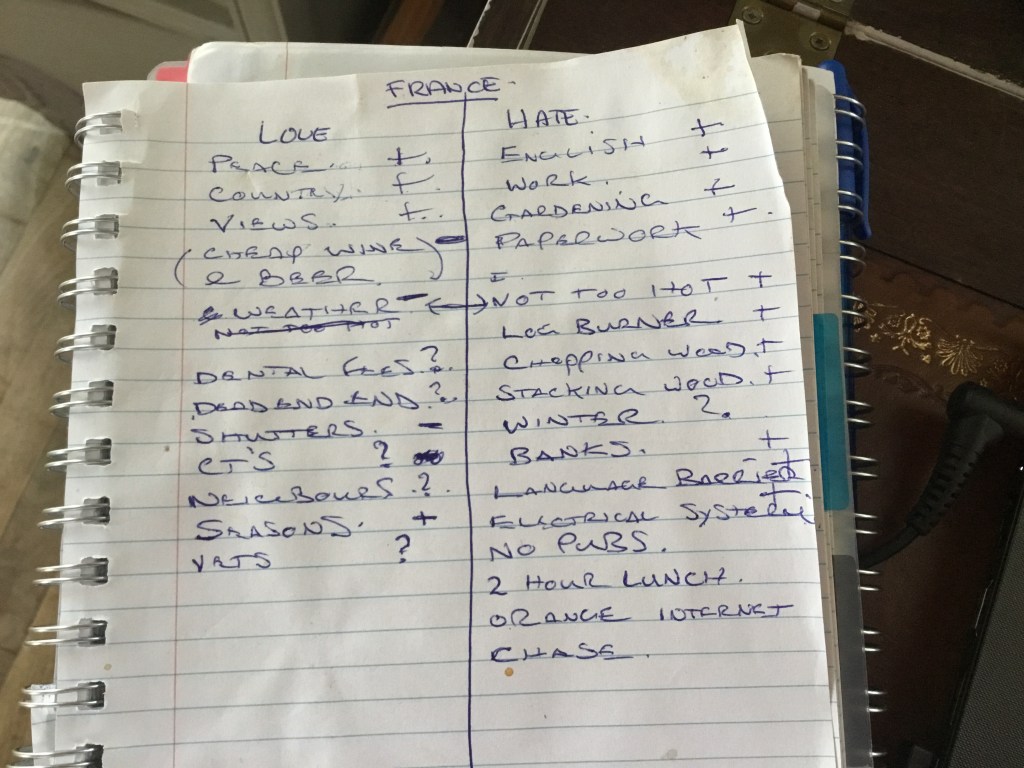 FRANCE.
LOVE
PEACE. +.
COUNTRY. +.
VIEWS. +..
(CHEAP WINE
& BEER.) -
& WEATHER - ↔
NOT TOO HOT
DENTAL FEES. ?.
DEAD END END. ?.
SHUTTERS. -
CT'S ?
NEIGBOURS. ?.
SEASONS. +
VETS ?
HATE.
ENGLISH +
WORK. +
GARDENING +
PAPERWORK +.
NOT TOO HOT. +
LOG BURNER. +
CHOPPING WOOD. +
STACKING WOOD. +
WINTER. ?.
BANKS. +
LANGUAGE BARRIER +
ELECTRICAL SYSTEM +
NO PUBS.
2 HOUR LUNCH.
ORANGE INTERNET
CHASE.